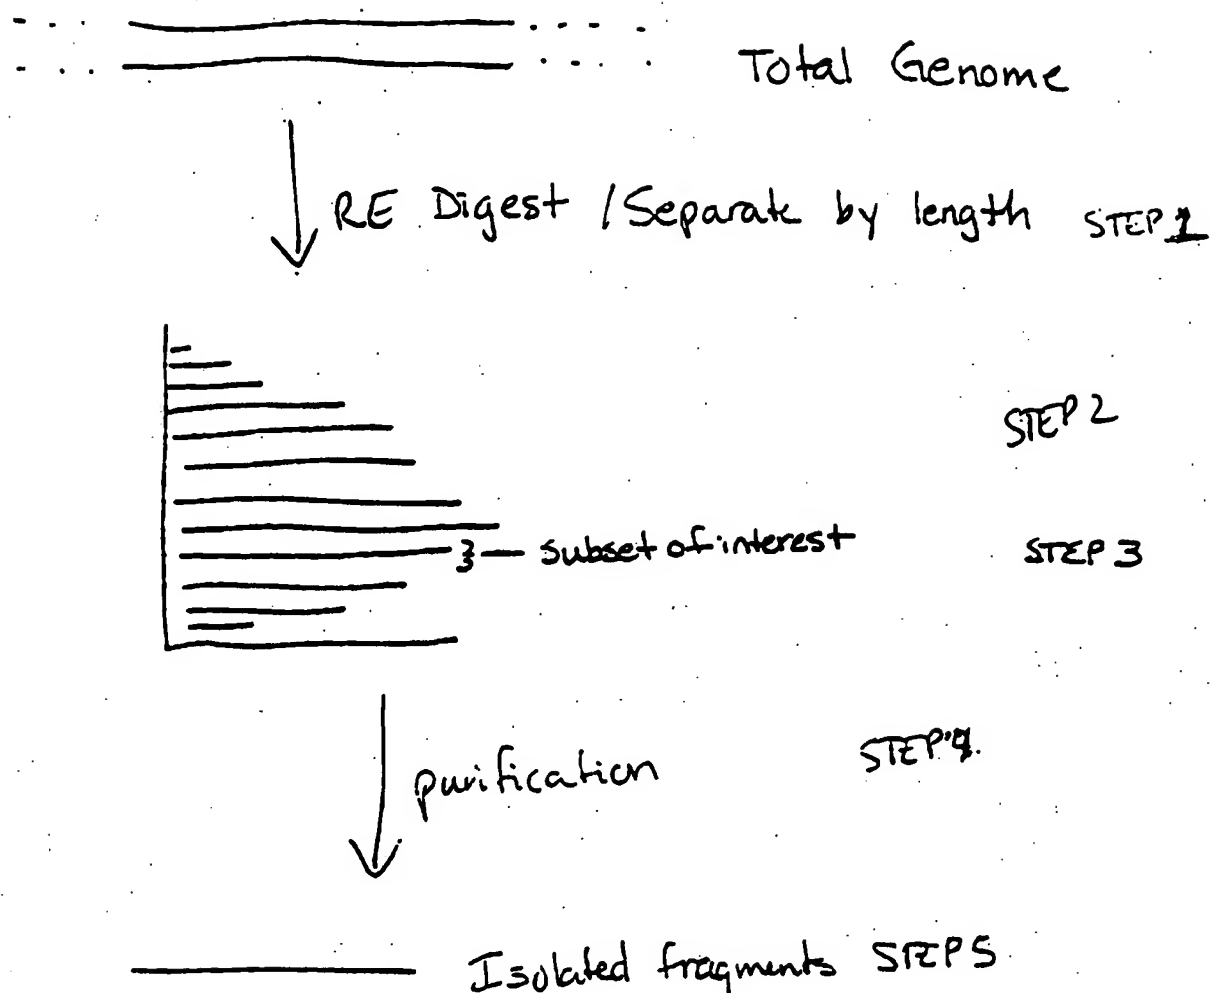 Total Genome
RE Digest / Separate by length STEP 1
STEP 2
Subset of interest STEP 3
STEP 4.
purification
Isolated fragments STEP 5